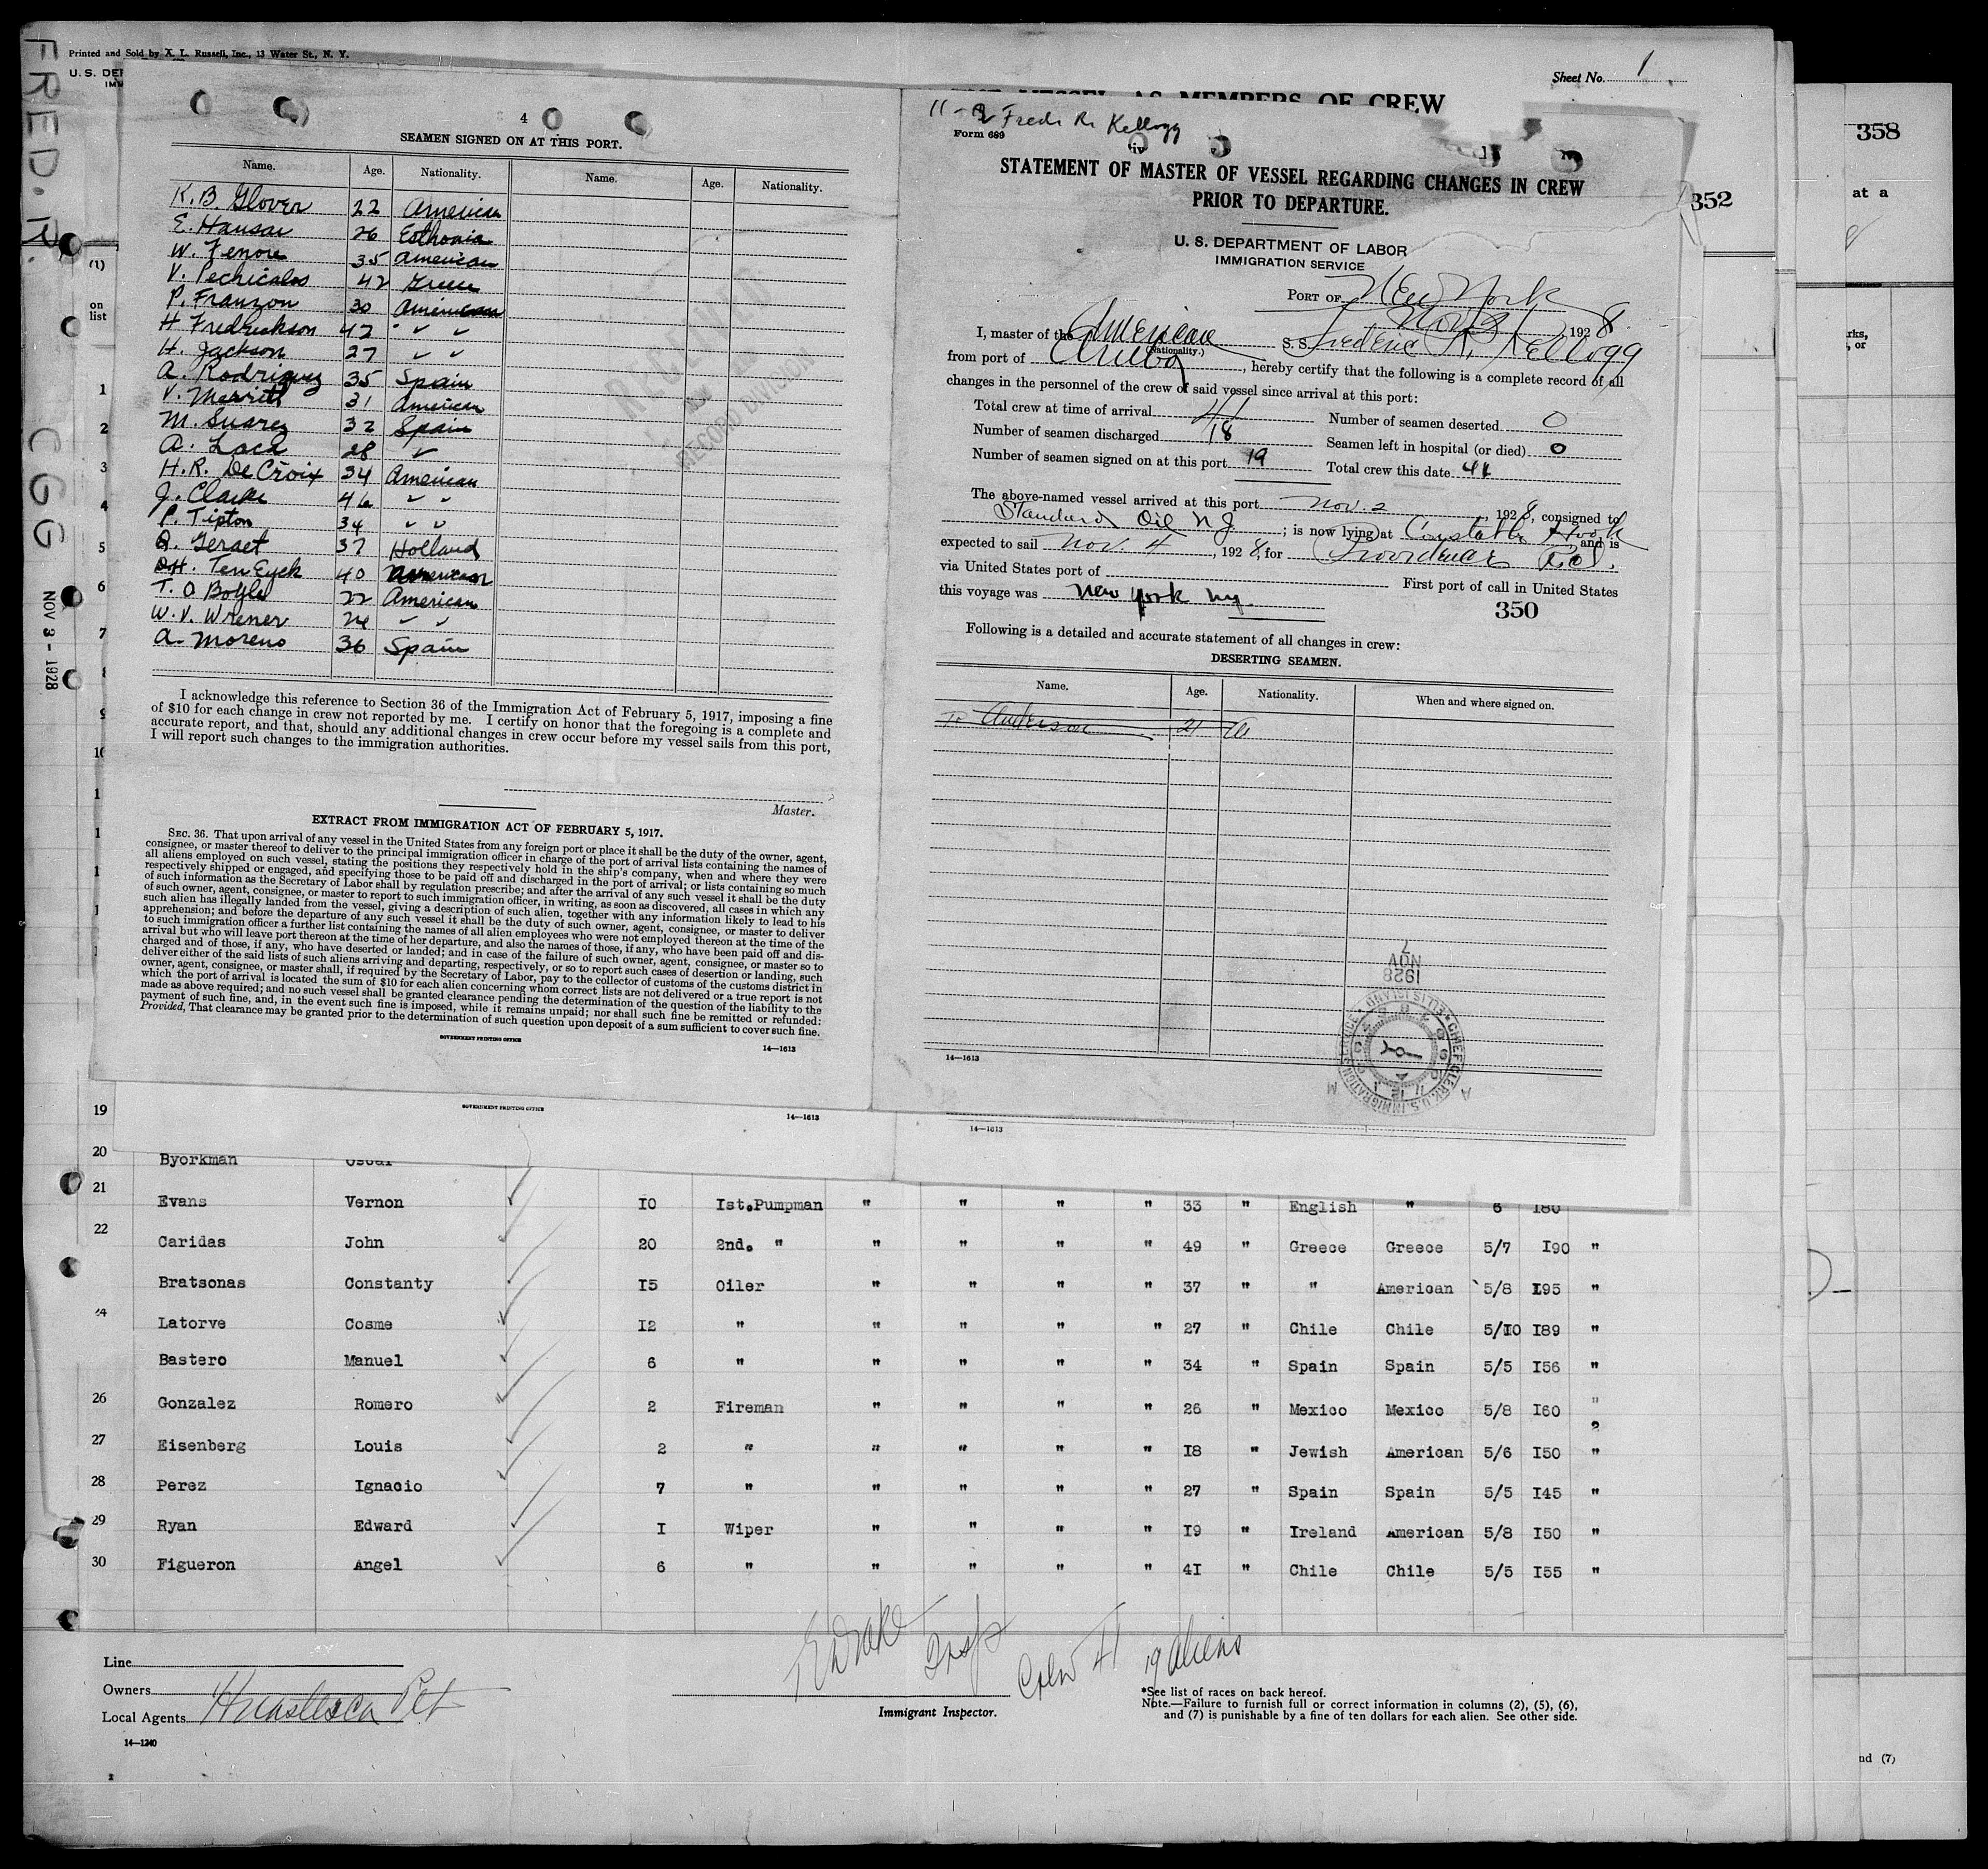 FRED. R. CGG
NOV 3 - 1928
Printed and Sold by X. L. Russell, Inc., 13 Water St., N. Y.
U. S. DEP
IMM
Sheet No. 1
AS MEMBERS OF CREW
358
at a
352
(1)
on
list
4
SEAMEN SIGNED ON AT THIS PORT.
Name. Age. Nationality. Name. Age. Nationality.
K. B. Glover 22 American
E. Hansai 26 Esthonia
W. Fenore 35 American
V. Pechicalos 42 Greece
P. Franzon 30 American
H Fredrickson 42 " "
H. Jackson 27 " "
A. Rodriguez 35 Spain
V. Merritt 31 American
M. Suarez 32 Spain
A. Laca 28 "
H. R. De Croix 34 American
J. Clarke 46 " "
P. Tipton 34 " "
Geraet 37 Holland
H. Ten Eyck 40 American
T. O Boyle 22 American
W. V. Wrener 24 " "
A. Moreno 36 Spain
RECEIVED
RECORD DIVISION
I acknowledge this reference to Section 36 of the Immigration Act of February 5, 1917, imposing a fine
of $10 for each change in crew not reported by me. I certify on honor that the foregoing is a complete and
accurate report, and that, should any additional changes in crew occur before my vessel sails from this port,
I will report such changes to the immigration authorities.
Master.
EXTRACT FROM IMMIGRATION ACT OF FEBRUARY 5, 1917.
SEC. 36. That upon arrival of any vessel in the United States from any foreign port or place it shall be the duty of the owner, agent,
consignee, or master thereof to deliver to the principal immigration officer in charge of the port of arrival lists containing the names of
all aliens employed on such vessel, stating the positions they respectively hold in the ship's company, when and where they were
respectively shipped or engaged, and specifying those to be paid off and discharged in the port of arrival; or lists containing so much
of such information as the Secretary of Labor shall by regulation prescribe; and after the arrival of any such vessel it shall be the duty
of such owner, agent, consignee, or master to report to such immigration officer, in writing, as soon as discovered, all cases in which any
such alien has illegally landed from the vessel, giving a description of such alien, together with any information likely to lead to his
apprehension; and before the departure of any such vessel it shall be the duty of such owner, agent, consignee, or master to deliver
to such immigration officer a further list containing the names of all alien employees who were not employed thereon at the time of the
arrival but who will leave port thereon at the time of her departure, and also the names of those, if any, who have been paid off and dis-
charged and of those, if any, who have deserted or landed; and in case of the failure of such owner, agent, consignee, or master so to
deliver either of the said lists of such aliens arriving and departing, respectively, or so to report such cases of desertion or landing, such
owner, agent, consignee, or master shall, if required by the Secretary of Labor, pay to the collector of customs of the customs district in
which the port of arrival is located the sum of $10 for each alien concerning whom correct lists are not delivered or a true report is not
made as above required; and no such vessel shall be granted clearance pending the determination of the question of the liability to the
payment of such fine, and, in the event such fine is imposed, while it remains unpaid; nor shall such fine be remitted or refunded:
Provided, That clearance may be granted prior to the determination of such question upon deposit of a sum sufficient to cover such fine.
GOVERNMENT PRINTING OFFICE
14—1613
11-2 Fred. R. Kellogg
Form 689
STATEMENT OF MASTER OF VESSEL REGARDING CHANGES IN CREW
PRIOR TO DEPARTURE.
U. S. DEPARTMENT OF LABOR
IMMIGRATION SERVICE
PORT OF New York
Nov 3 1928.
I, master of the American S. S. Frederic R. Kellogg
(Nationality.)
from port of Aruba, hereby certify that the following is a complete record of all
changes in the personnel of the crew of said vessel since arrival at this port:
Total crew at time of arrival 41 Number of seamen deserted 0
Number of seamen discharged 18 Seamen left in hospital (or died) 0
Number of seamen signed on at this port 19 Total crew this date
The above-named vessel arrived at this port Nov. 2, 1928, consigned to
Standard Oil N J.; is now lying at Constable Hook and is
expected to sail Nov. 4, 1928, for Providence R.I.
via United States port of First port of call in United States
this voyage was New York Ny.
350
Following is a detailed and accurate statement of all changes in crew:
DESERTING SEAMEN.
Name. Age. Nationality. When and where signed on.
Anderson 21
1928
NOV
7
CHIEF CLERK, U.S. IMMIGRATION SERVICE - ELLIS ISLAND
A M
14—1613
GOVERNMENT PRINTING OFFICE
14—1613
14—1613
19
20 Byorkman Oscar
21 Evans Vernon 10 Ist.Pumpman " " " " 33 " English " 6 I80
22 Caridas John 20 2nd. " " " " " 49 " Greece Greece 5/7 I90 "
Bratsonas Constanty I5 Oiler " " " " 37 " " American 5/8 I95 "
24 Latorve Cosme I2 " " " " " 27 " Chile Chile 5/I0 I89 "
Bastero Manuel 6 " " " " " 34 " Spain Spain 5/5 I56 "
26 Gonzalez Romero 2 Fireman " " " " 26 " Mexico Mexico 5/8 I60 "
27 Eisenberg Louis 2 " " " " " I8 " Jewish American 5/6 I50 "
28 Perez Ignacio 7 " " " " " 27 " Spain Spain 5/5 I45 "
29 Ryan Edward I Wiper " " " " I9 " Ireland American 5/8 I50 "
30 Figueron Angel 6 " " " " " 4I " Chile Chile 5/5 I55 "
Line
Owners
Local Agents Huasteca Pet
14—1240
Insp
Immigrant Inspector.
Crew 41 19 aliens
*See list of races on back hereof.
Note.—Failure to furnish full or correct information in columns (2), (5), (6),
and (7) is punishable by a fine of ten dollars for each alien. See other side.
nd (7)